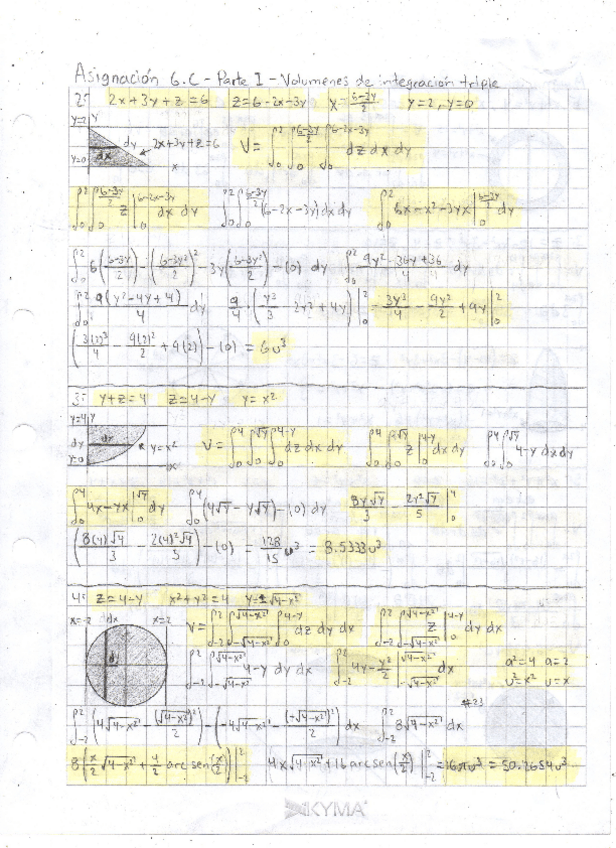 Asignación 6.C - Parte I - Volumenes de integración triple
2: 2x+3y+z=6 z=6-2x-3y x=(6-3y)/2 y=2, y=0
y=2 y
y=0 dx dy 2x+3y+z=6 x
V= ∫₀² ∫₀^((6-3y)/2) ∫₀^(6-2x-3y) dz dx dy
∫₀² ∫₀^((6-3y)/2) z |₀^(6-2x-3y) dx dy ∫₀² ∫₀^((6-3y)/2) (6-2x-3y) dx dy ∫₀² 6x-x²-3yx |₀^((6-3y)/2) dy
∫₀² 6((6-3y)/2) - ((6-3y)/2)² - 3y((6-3y)/2) - (0) dy ∫₀² (9y²-36y+36)/4 dy
∫₀² 9(y²-4y+4)/4 dy 9/4 · (y³/3 - 2y² + 4y) |₀² = 3y³/4 - 9y²/2 + 9y |₀²
(3(2)³/4 - 9(2)²/2 + 9(2)) - (0) = 6u³
3: y+z=4 z=4-y y=x²
y=4 y
dy dx y=x²
y=0 x
V= ∫₀⁴ ∫₀^√y ∫₀^(4-y) dz dx dy ∫₀⁴ ∫₀^√y z |₀^(4-y) dx dy ∫₀⁴ ∫₀^√y 4-y dx dy
∫₀⁴ 4x-yx |₀^√y dy ∫₀⁴ (4√y - y√y) - (0) dy 8y√y/3 - 2y²√y/5 |₀⁴
(8(4)√4/3 - 2(4)²√4/5) - (0) = 128/15 u³ = 8.5333u³
4: z=4-y x²+y²=4 y=±√(4-x²)
x=-2 dx x=2
dy
V= ∫₋₂² ∫_(-√(4-x²))^(√(4-x²)) ∫₀^(4-y) dz dy dx ∫₋₂² ∫_(-√(4-x²))^(√(4-x²)) z |₀^(4-y) dy dx
∫₋₂² ∫_(-√(4-x²))^(√(4-x²)) 4-y dy dx ∫₋₂² 4y - y²/2 |_(-√(4-x²))^(√(4-x²)) dx a²=4 a=2
u²=x² u=x
#23
∫₋₂² (4√(4-x²) - (√(4-x²))²/2) - (-4√(4-x²) - (-√(4-x²))²/2) dx ∫₋₂² 8√(4-x²) dx
8(x/2 √(4-x²) + 4/2 arc sen(x/2)) |₋₂² (4x√(4-x²) + 16 arc sen(x/2)) |₋₂² = 16πu³ = 50.2654u³
KYMA